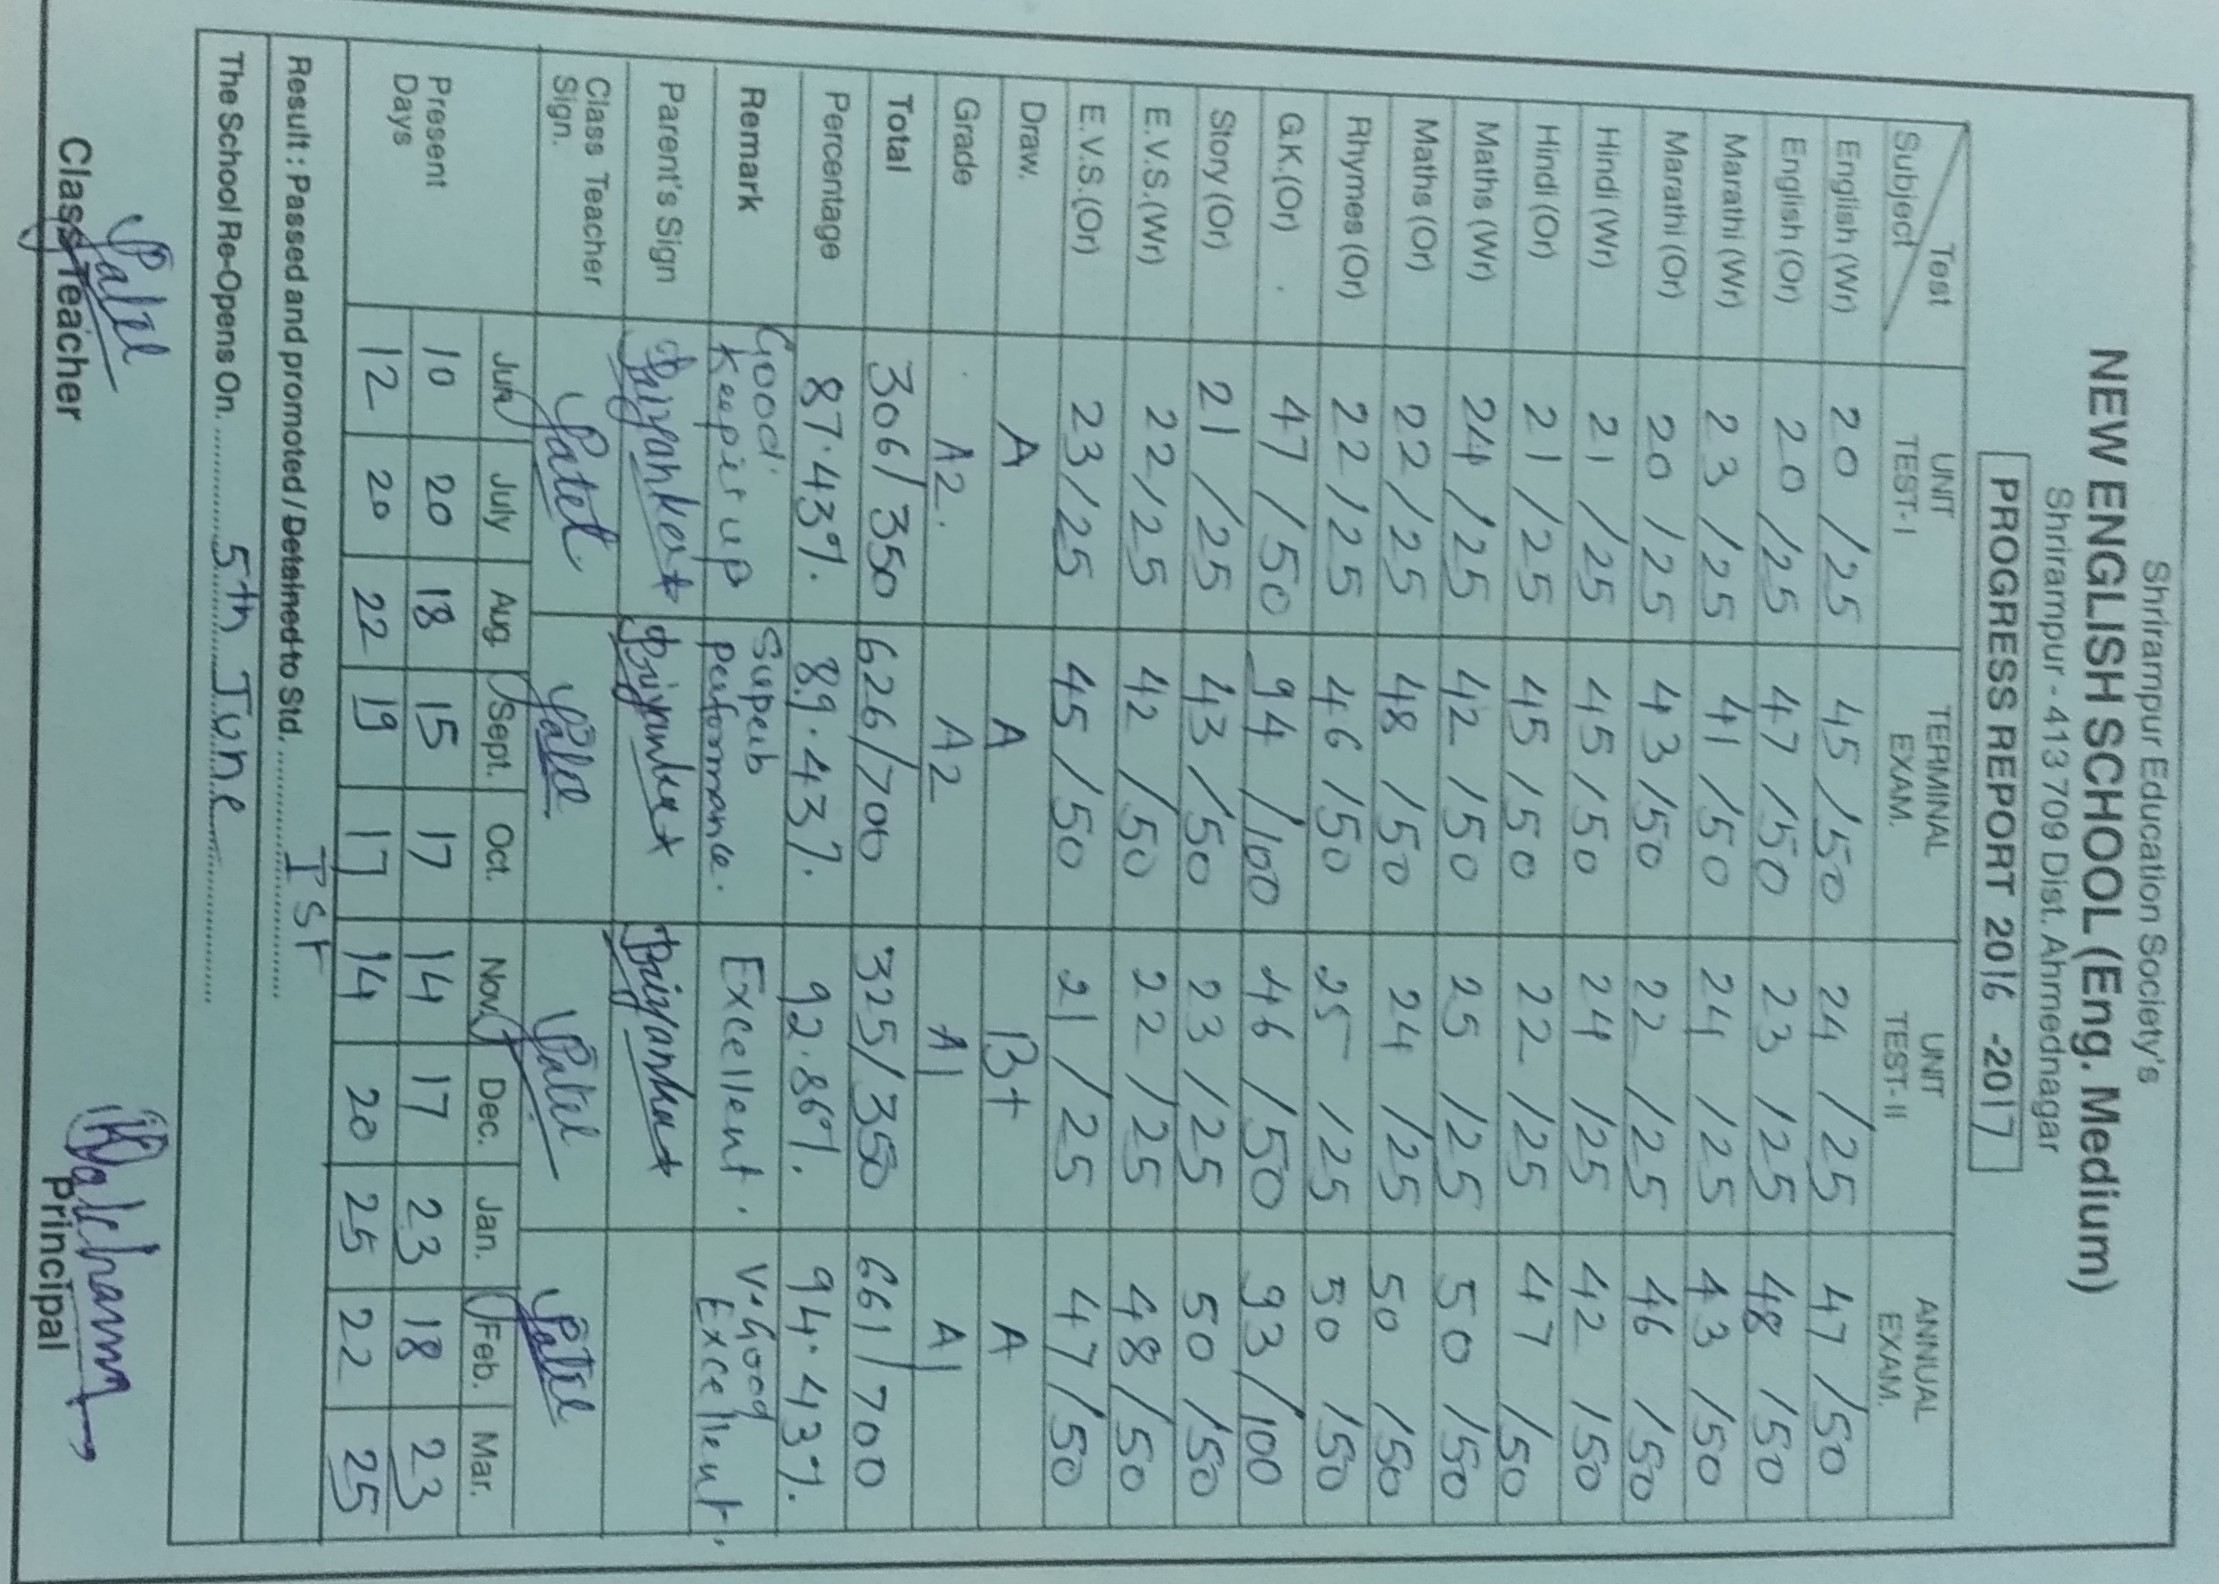 Shrirampur Education Society's
NEW ENGLISH SCHOOL (Eng. Medium)
Shrirampur - 413 709 Dist. Ahmednagar
PROGRESS REPORT 2016 -2017
Test Subject UNIT TEST-I TERMINAL EXAM. UNIT TEST-II ANNUAL EXAM.
English (Wr) 20 /25 45 /50 24 /25 47 /50
English (Or) 20 /25 47 /50 23 /25 48 /50
Marathi (Wr) 23 /25 41 /50 24 /25 43 /50
Marathi (Or) 20 /25 43 /50 22 /25 46 /50
Hindi (Wr) 21 /25 45 /50 24 /25 42 /50
Hindi (Or) 21 /25 45 /50 22 /25 47 /50
Maths (Wr) 24 /25 42 /50 25 /25 50 /50
Maths (Or) 22 /25 48 /50 24 /25 50 /50
Rhymes (Or) 22 /25 46 /50 25 /25 50 /50
G.K.(Or) 47 /50 94 /100 46 /50 93 /100
Story (Or) 21 /25 43 /50 23 /25 50 /50
E.V.S.(Wr) 22 /25 42 /50 22 /25 48 /50
E.V.S.(Or) 23 /25 45 /50 21 /25 47 /50
Draw. A A B+ A
Grade A2. A2 A1 A1
Total 306/350 626/700 325/350 661/700
Percentage 87.43%. 89.43%. 92.86%. 94.43%.
Remark Good. Keep it up Superb performance. Excellent. V.Good Excellent.
Parent's Sign
Class Teacher Sign. Patel
Jun July Aug. Sept. Oct. Nov. Dec. Jan. Feb. Mar.
Present Days 10 20 18 15 17 14 17 23 18 23
12 20 22 19 17 14 20 25 22 25
Result : Passed and promoted / Detained to Std. Ist
The School Re-Opens On. 5th June
Class Teacher Principal